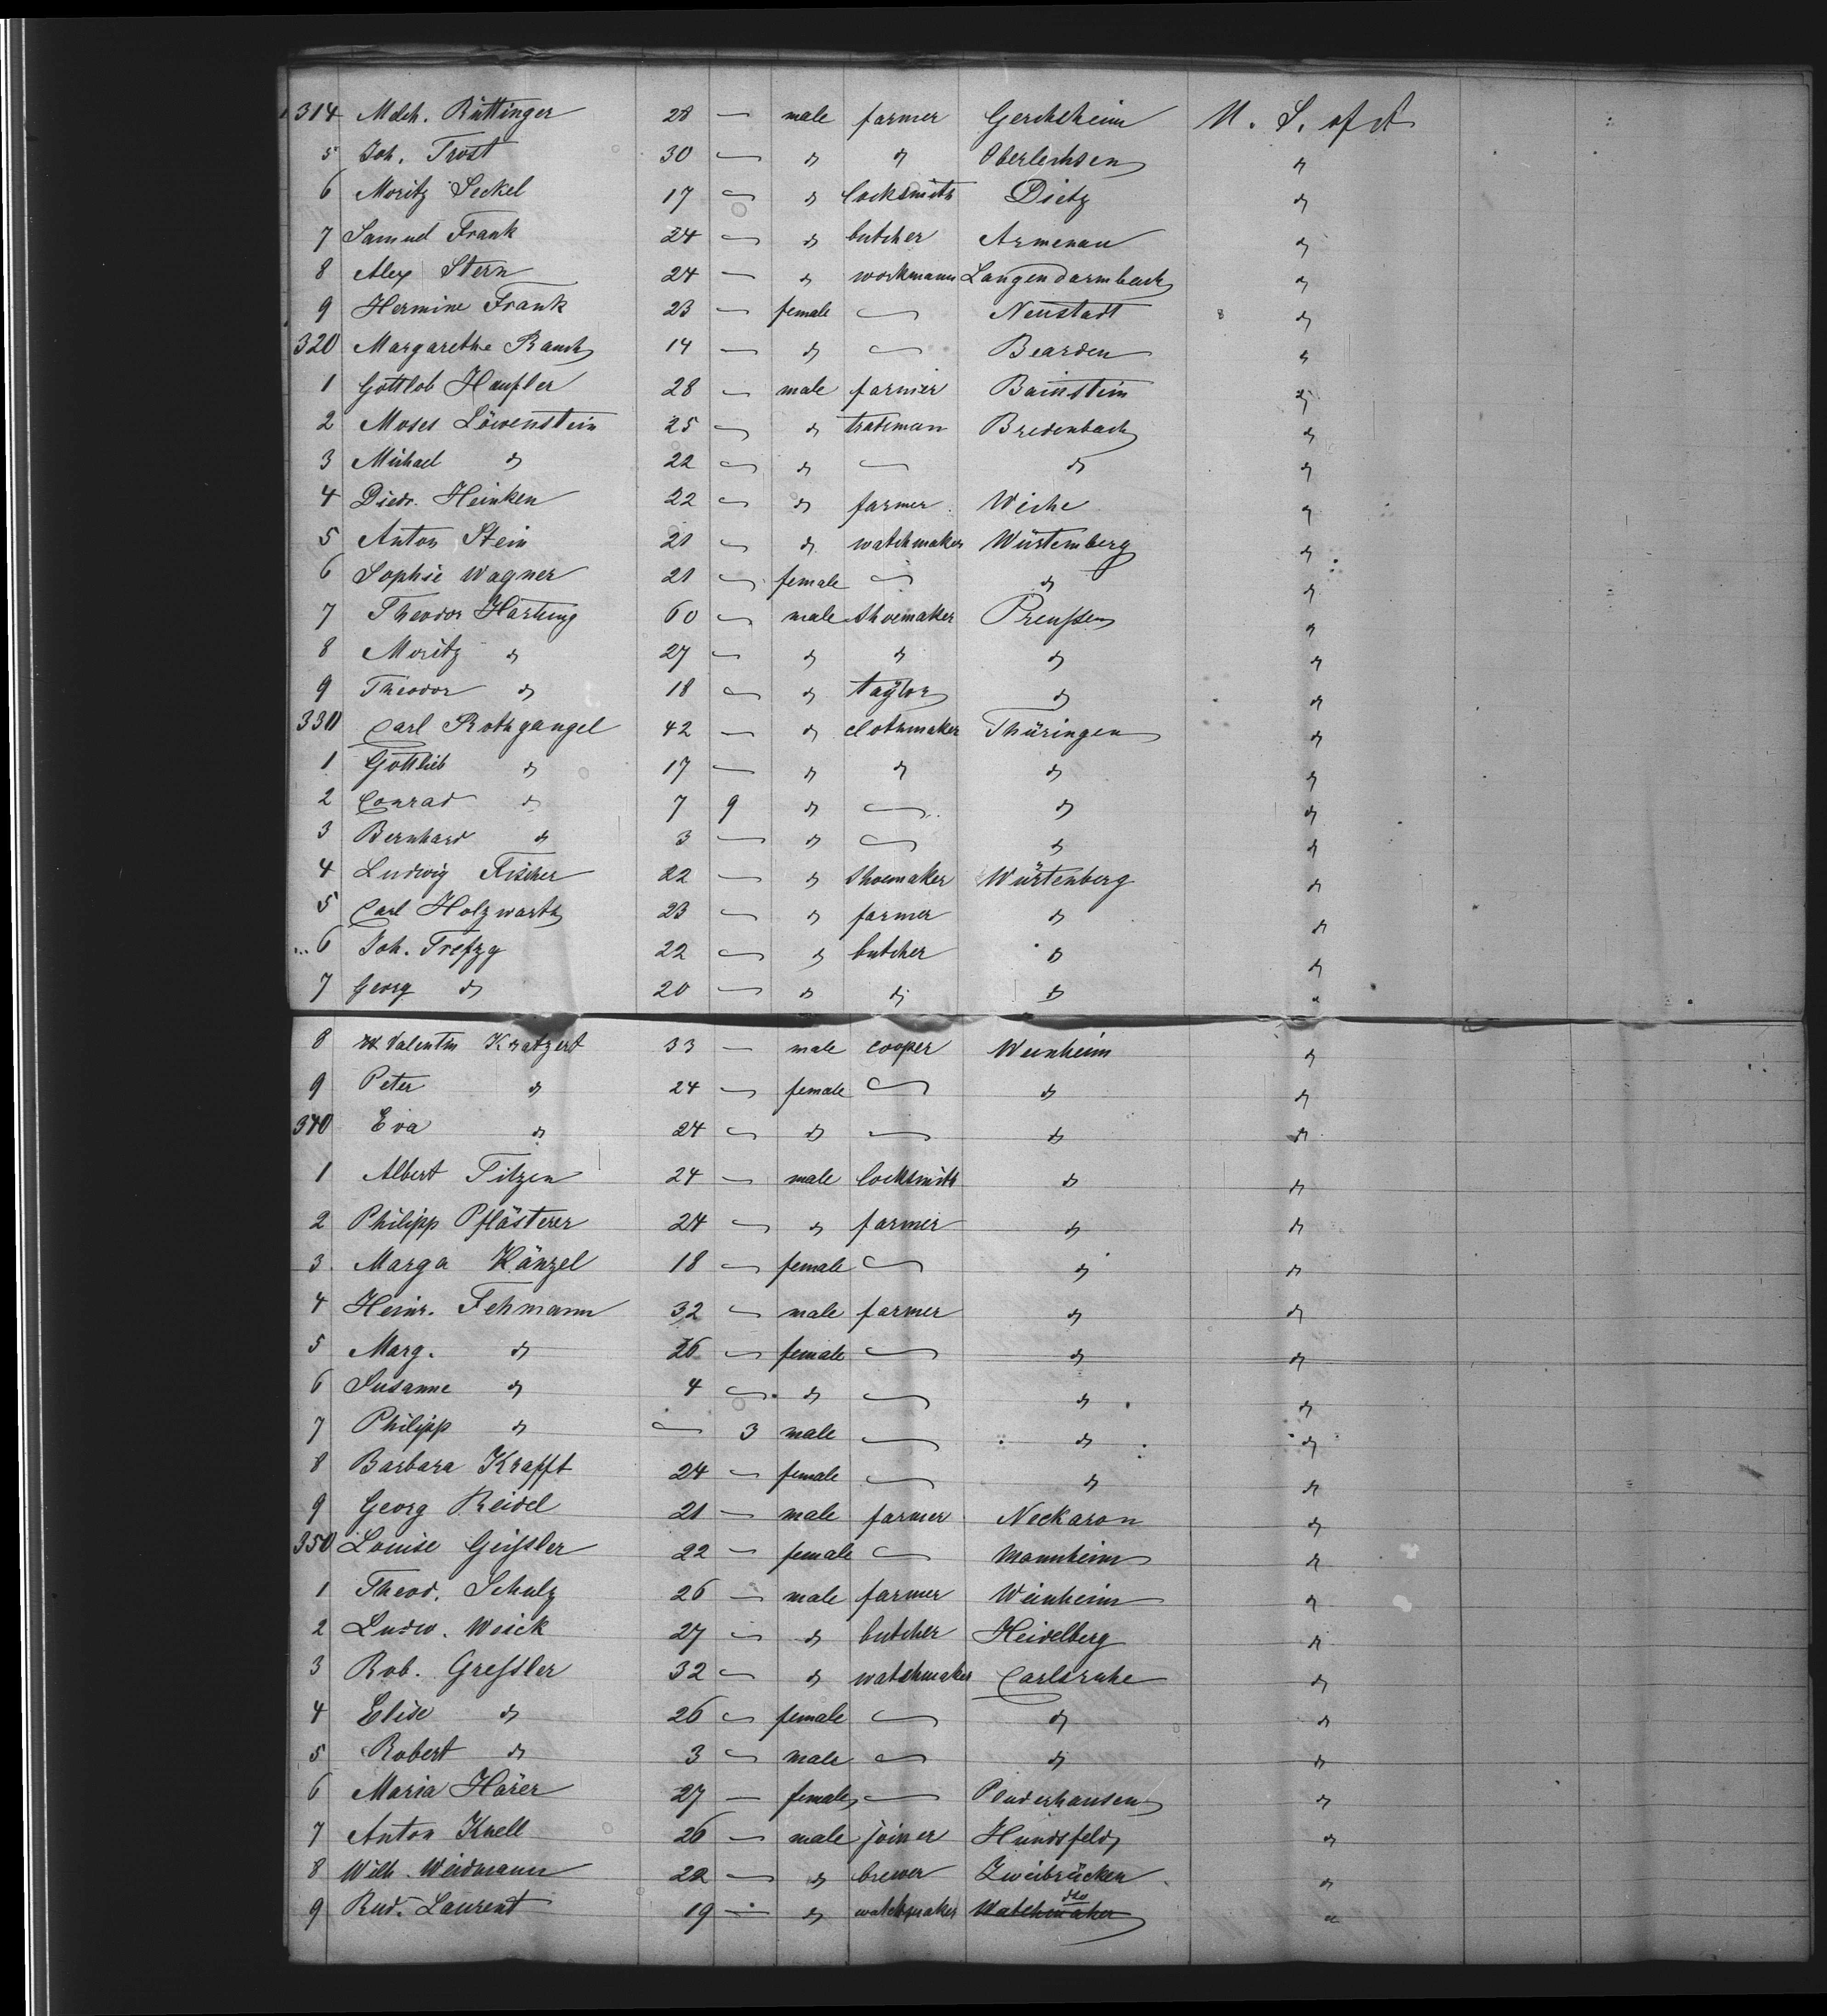 314 Melch. Rüttinger 28 — male farmer Gerchsheim U. S. of A
5 Joh. Trost 30 — " " Oberlechsen "
6 Moritz Seckel 17 — " locksmith Dietz "
7 Samuel Frank 24 — " butcher Armenau "
8 Alex Stern 24 — " workmann Langendarmbach "
9 Hermine Frank 23 — female — Neustadt "
320 Margarethe Rauch 14 — " — Bearden "
1 Gottlob Haußler 28 — male farmer Bainstein "
2 Moses Löwenstein 25 — " trademan Bredenbach "
3 Michael " 22 — " — " "
4 Diedr. Heinken 22 — " farmer Wiche "
5 Anton Stein 21 — " watchmaker Würtemberg "
6 Sophie Wagner 21 — female — " "
7 Theodor Hartung 60 — male shoemaker Preußen "
8 Moritz " 27 — " " " "
9 Theodor " 18 — " taylor " "
330 Carl Rothgangel 42 — " clothmaker Thüringen "
1 Gottlieb " 17 — " " " "
2 Conrad " 7 9 " — " "
3 Bernhard " 3 — " — " "
4 Ludwig Fischer 22 — " shoemaker Würtenberg "
5 Carl Holzwarth 23 — " farmer " "
6 Joh. Trefzg 22 — " butcher " "
7 Georg " 20 — " " " "
8 Valentin Kratzert 33 — male cooper Weinheim "
9 Peter " 24 — female — " "
340 Eva " 24 — " — " "
1 Albert Titzen 24 — male locksmith " "
2 Philipp Pflästerer 24 — " farmer " "
3 Marga Hänzel 18 — female — " "
4 Heinr. Fehmann 32 — male farmer " "
5 Marg. " 26 — female — " "
6 Susanne " 4 — " — " "
7 Philipp " — 3 male — " "
8 Barbara Krafft 24 — female — " "
9 Georg Reidel 21 — male farmer Neckaron "
350 Louise Geißler 22 — female — Mannheim "
1 Theod. Schulz 26 — male farmer Weinheim "
2 Ludw. Weick 27 — " butcher Heidelberg "
3 Rob. Greßler 32 — " watchmaker Carlsruhe "
4 Elise " 26 — female — " "
5 Robert " 3 — male — " "
6 Maria Härer 27 — female — Pluderhausen "
7 Anton Knell 26 — male joiner Hundsfeld "
8 Wilh. Weidmann 22 — " brewer Zweibrücken "
9 Rud. Laurent 19 — " watchmaker Watchmaker dto "